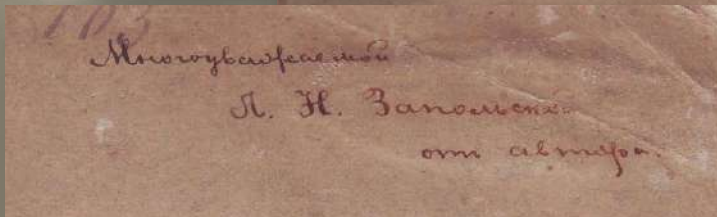 103
Многоуважаемой
Л. Н. Запольской
отъ автора.